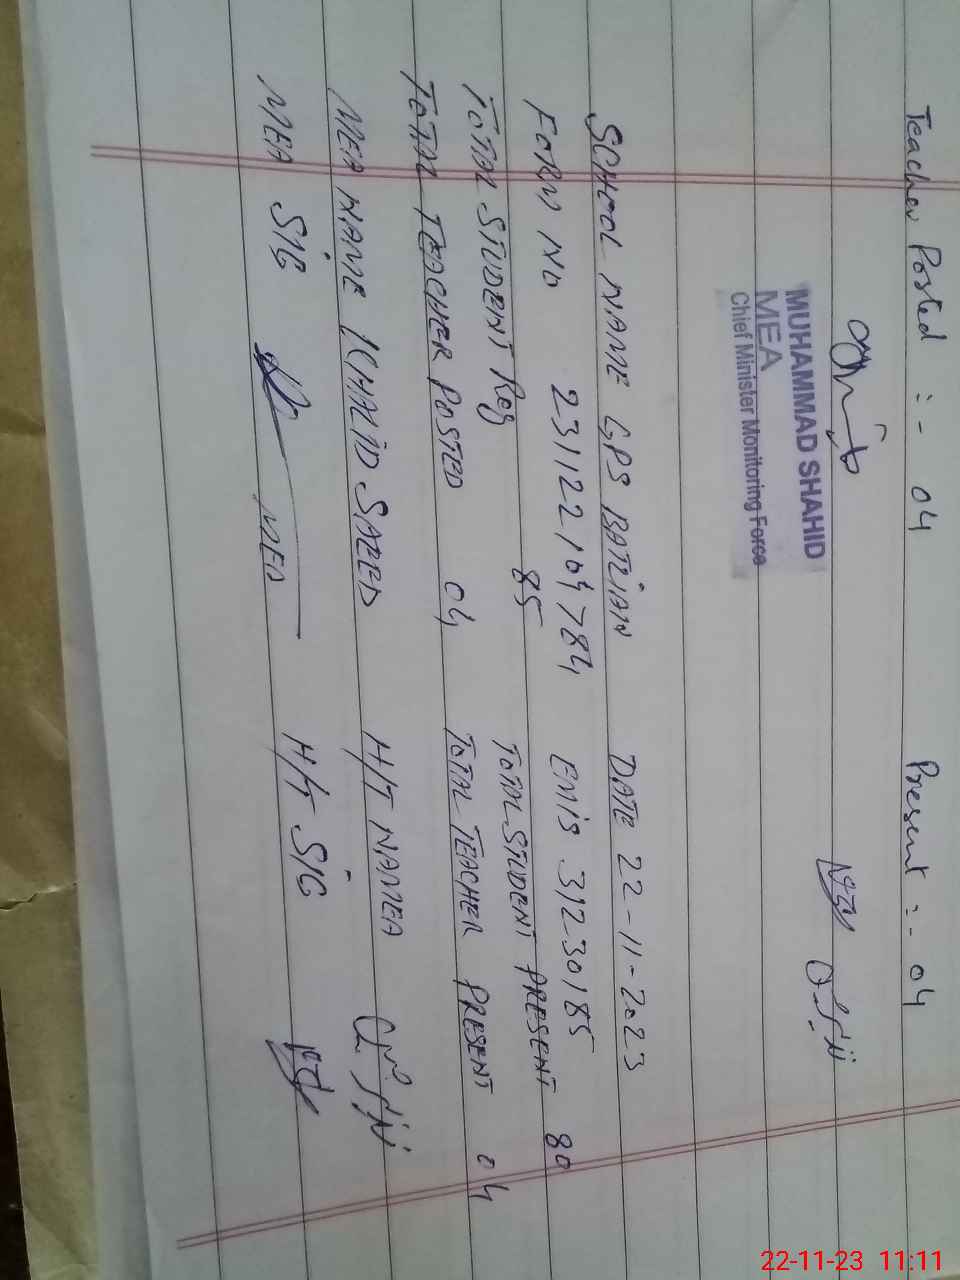 Teacher Posted :- 04 Present :- 04
MUHAMMAD SHAHID
MEA
Chief Minister Monitoring Force
SCHOOL NAME GPS BATLIAN DATE 22-11-2023
FORM No 231122104784 EMIS 31230185
TOTAL STUDENT Reg 85 TOTAL STUDENT PRESENT 80
TOTAL TEACHER POSTED 04 TOTAL TEACHER PRESENT 04
MEA NAME KHALID SAEED H/T NAMEA
MEA SIG MEA H/T SIG
22-11-23 11:11